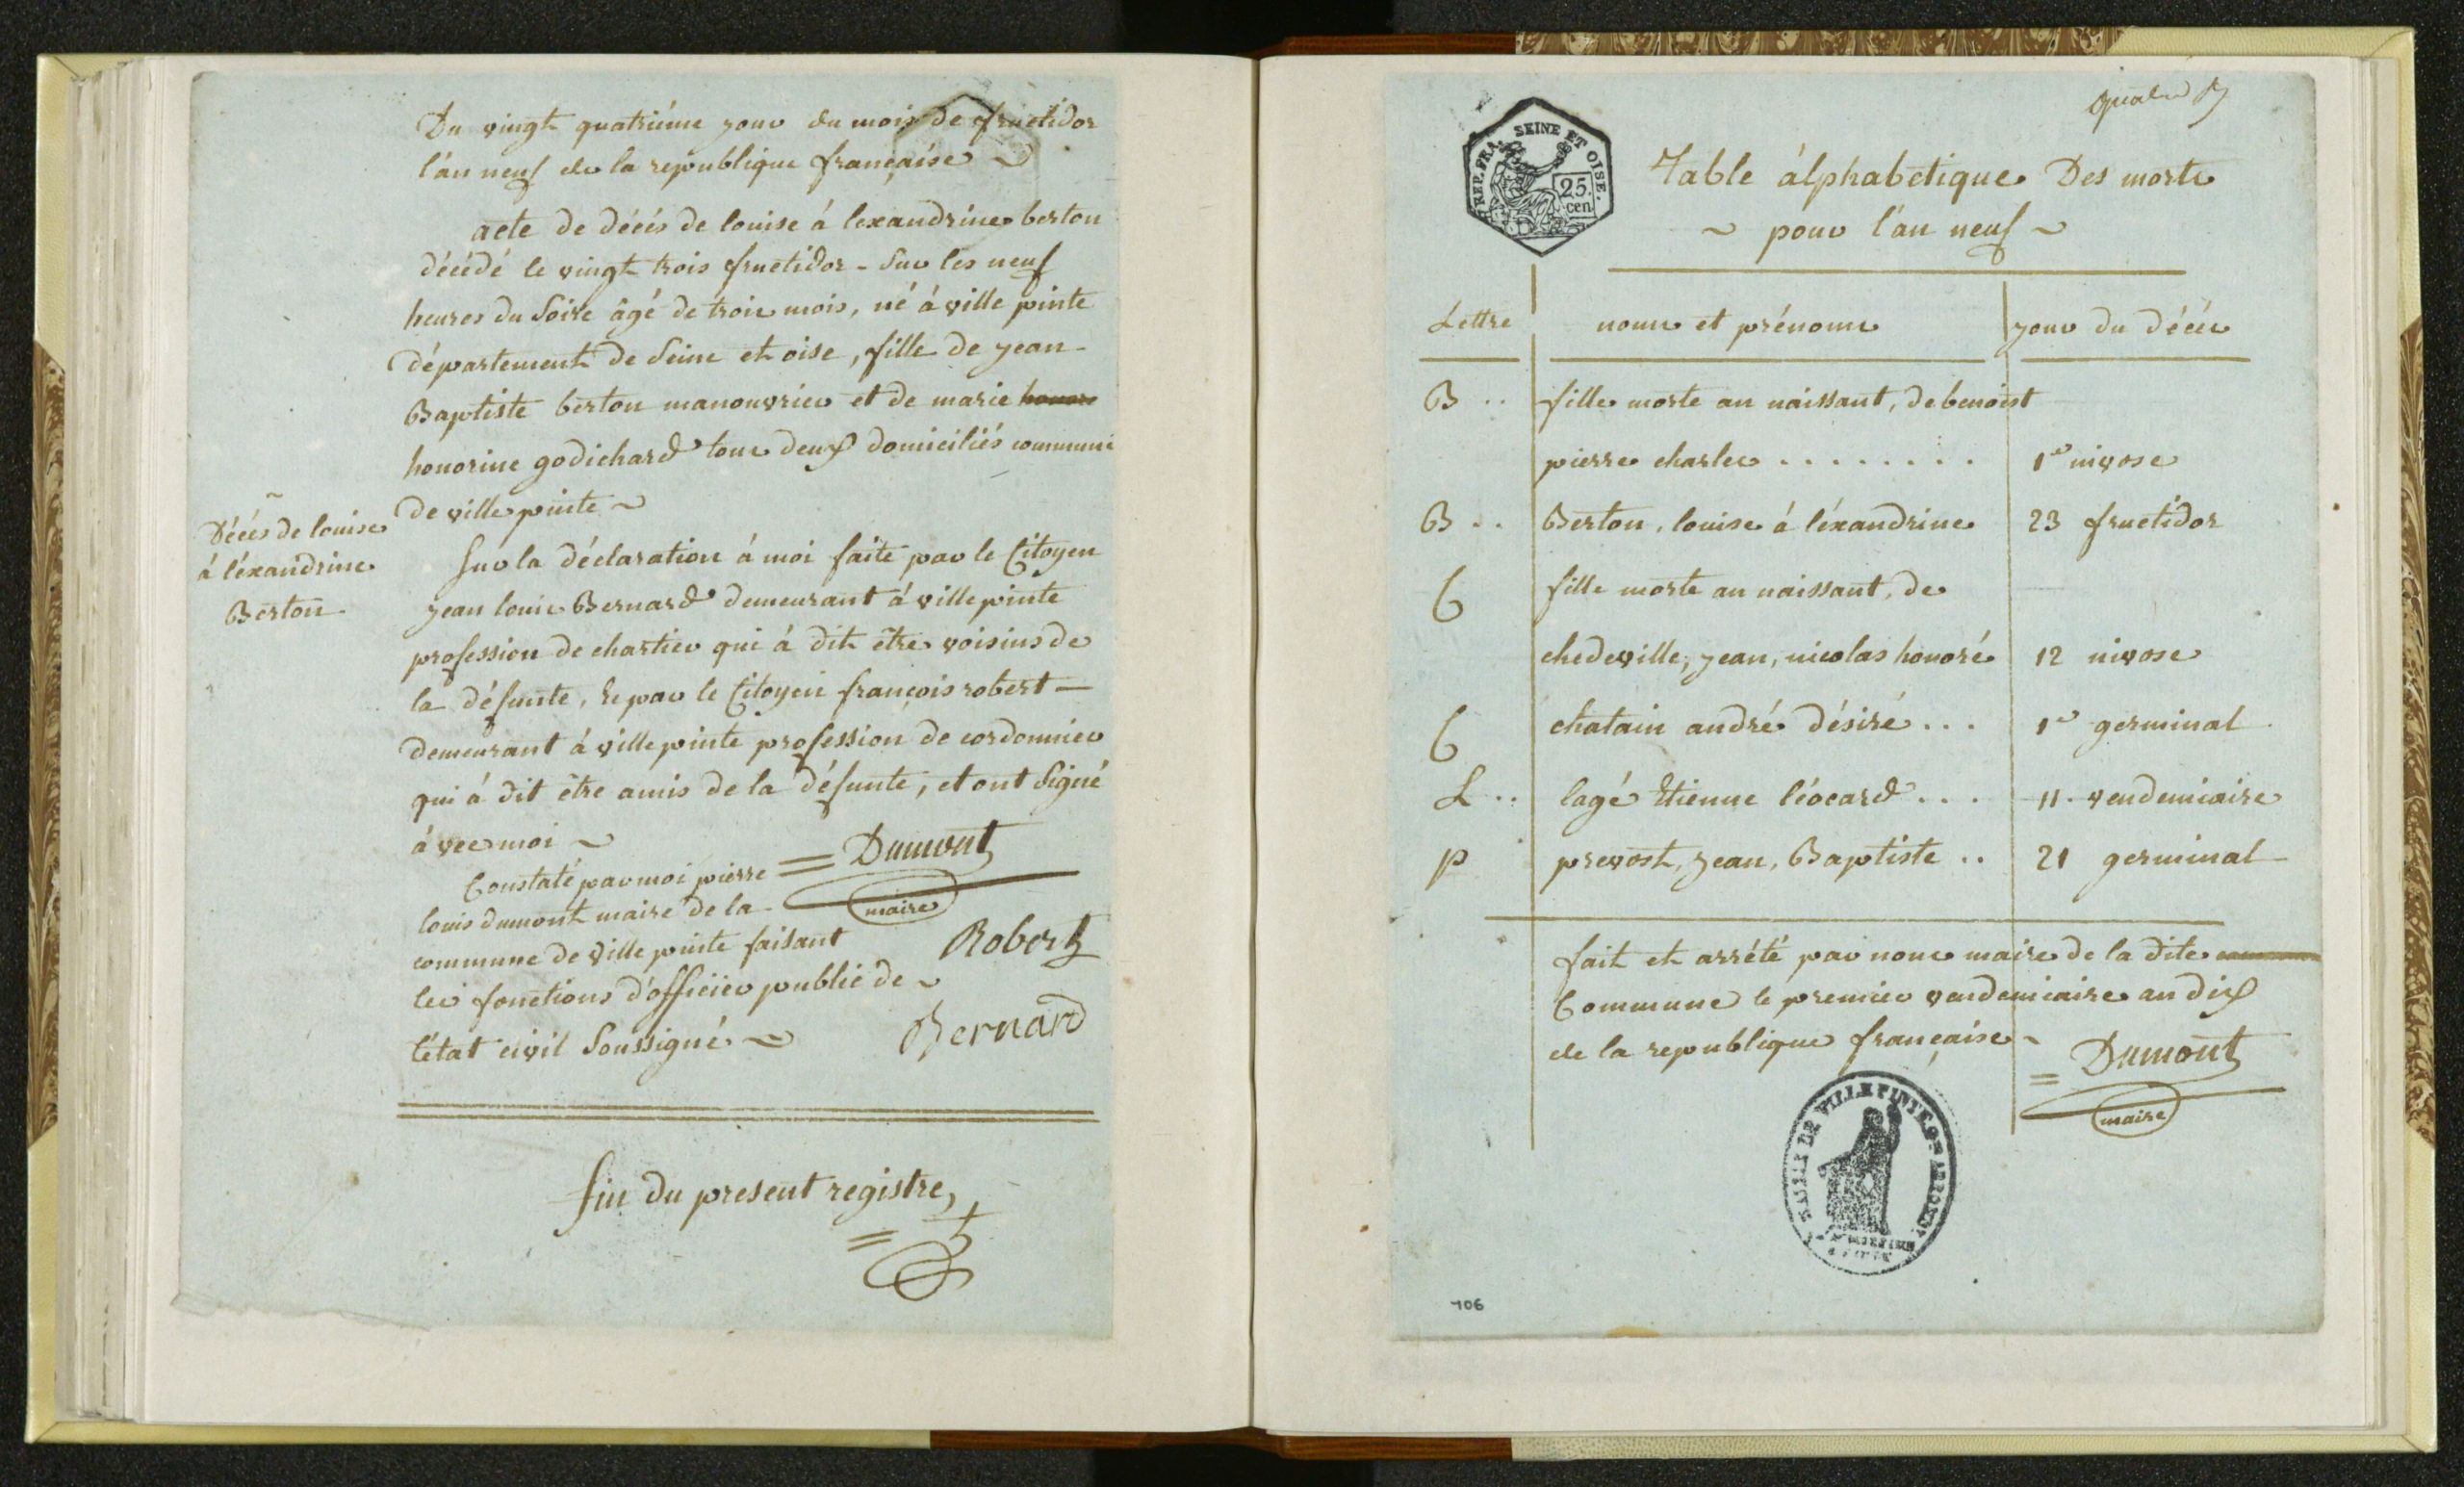 Du vingt quatriéme jour du mois de fructidor
l'án neuf de la republique françaíse
acte de décés de louise á lexandrine berton
décédé le vingt trois fructidor - Sur les neuf
heures du Soire âgé de trois mois, né á ville pinte
département de Seine et oise, fille de jean-
Baptiste berton manouvrier et de marie
honorine godichard tous deux domiciliés commune
de ville pinte
Décés de louise
á léxandrine
Berton
Sur la déclaration á moi faite par le Citoyen
jean louis Bernard demeurant á ville pinte
profession de chartier qui á dit être voisins de
la défunte, & par le Citoyen françois robert —
demeurant á ville pinte profession de cordonnier
qui á dit être amis de la défunte, et ont Signé
ávec moi
Constaté par moi pierre
louis dumont maire de la
commune de ville pinte faisant
les fonctions d'officier public de
l'état civil Soussigné
= Dumont
maire
Robert
Bernard
fin du present registre,
REP. FRA. SEINE ET OISE.
25.
cen.
Table álphabétique Des morts
~ pour l'án neuf ~
Lettre noms et prénoms jour du décés
B .. fille morte au naissant, de benoist
pierre charles ........ 1er nivose
B .. Berton, louise á léxandrine 23 fructidor
C fille morte au naissant, de
chedeville, jean, nicolas honoré 12 nivose
C chatain andré désiré ... 1er germinal
L .. lagé Etienne léocard ... 11. vendemiaire
p prevost, jean, Baptiste .. 21 germinal
fait et arrété par nous maire de la dite
Commune le premier vendemiaire an dix
de la republique françaíse
= Dumont
maire
MAIRIE DE VILLEPINTE
106